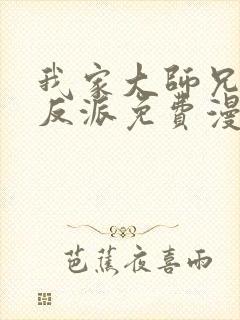 我家大師兄
反派免費漫
芭蕉夜喜雨